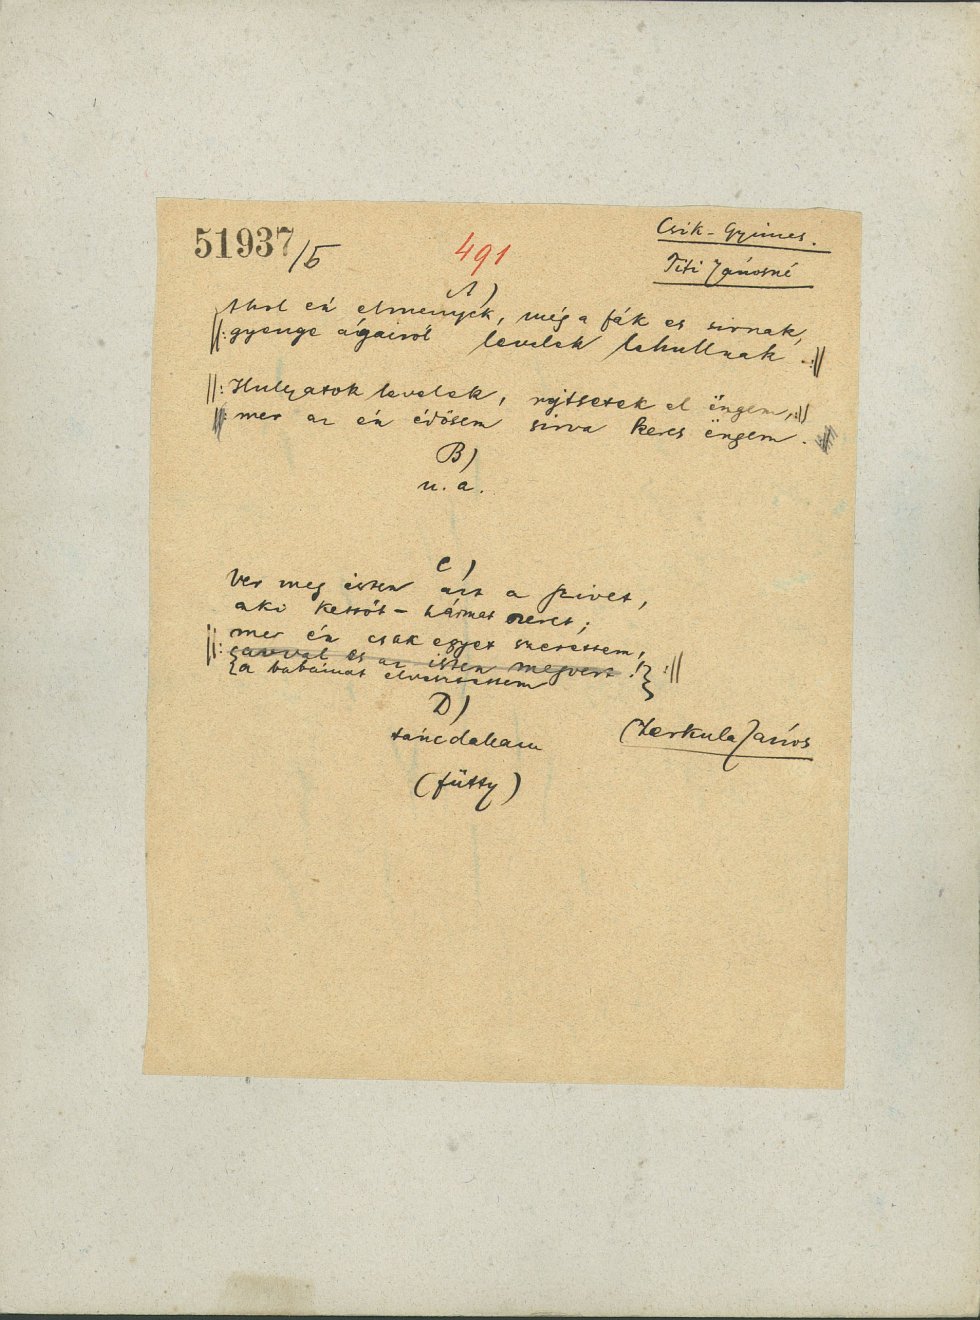 51937/5
491
Csik-Gyimes.
Titi Jánosné
A)
Ahol én elmenyek, még a fák es sirnak,
||: gyenge ágairól levelek lehullnak. :||
||: Hulyatok levelek, rejtsetek el ëngem, :||
mer az én édösem sirva keres ëngem.
B)
u. a.
C)
Ver meg isten azt a szivet,
aki kettőt-hármat szeret;
||: mer én csak egyet szerettem,
{savval es az isten megvert!} :||
{a babámat elvesztettem}
D)
táncdallam
Zerkula János
(fütty)